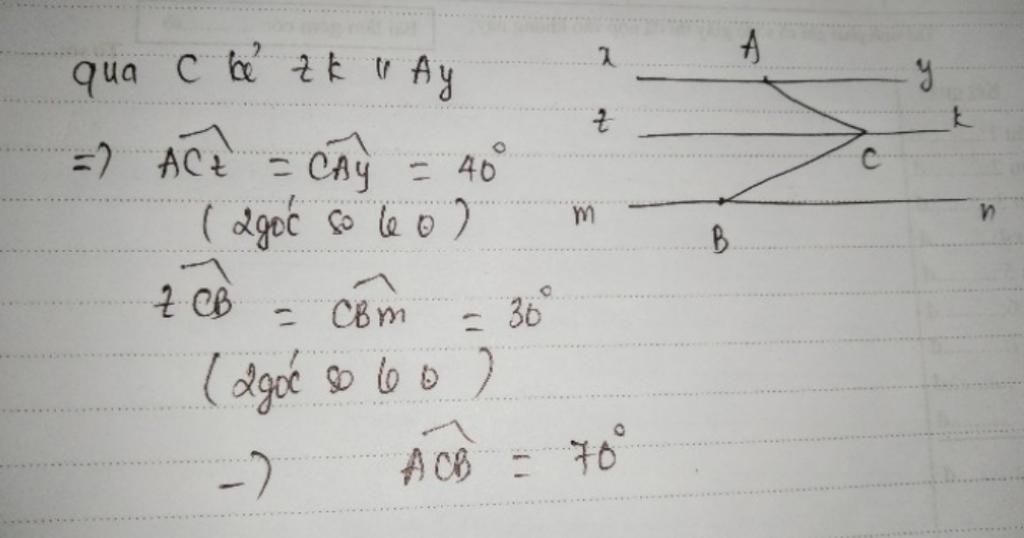 qua C kẻ zk // Ay
=> ACz = CAy = 40°
(2góc so le o)
zCB = CBm = 30°
(2góc so le o)
-> ACB = 70°
x A y
z k
C
m n
B